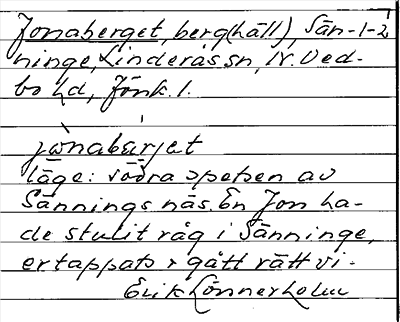 Jonaberget, berg (häll), Sän-1-2,
ninge, Linderås sn, N. Ved-
bo hd, Jönk. l.
jɷ̀nabærjet
läge: södra spetsen av
Sännings näs. En Jon ha-
de stulit råg i Sänninge,
ertappats & gått rätt vi-
Erik Lönnerholm